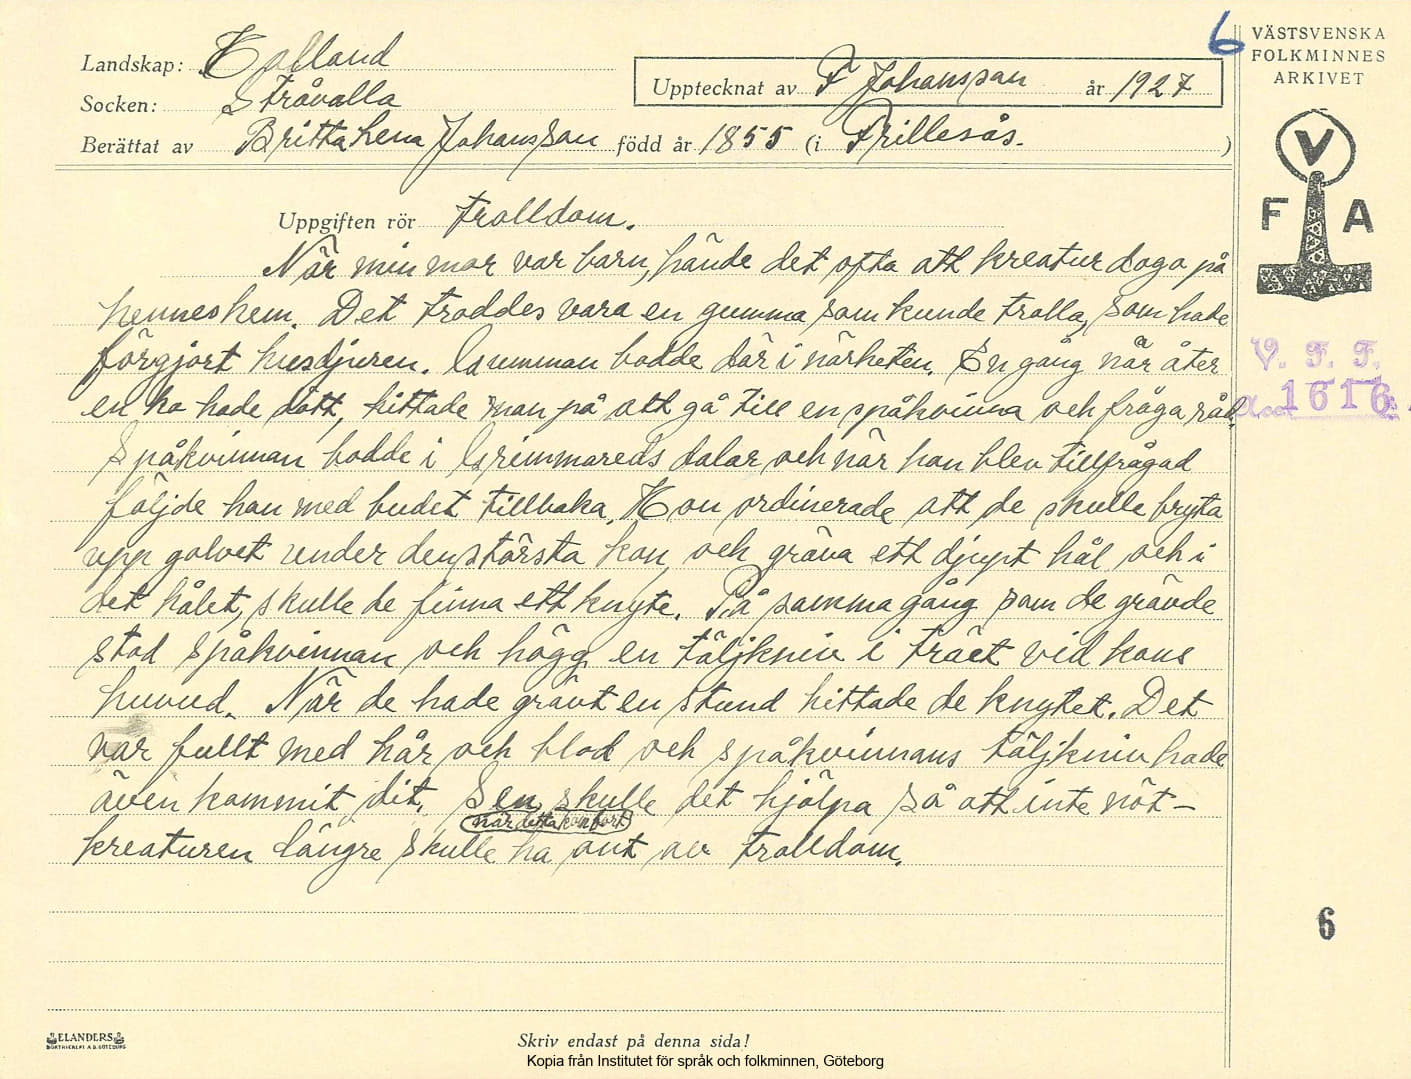 6
VÄSTSVENSKA
FOLKMINNES
ARKIVET
Landskap: Halland
Upptecknat av F Johansson år 1927
Socken: Stråvalla
Berättat av Britta Lena Johansson född år 1855 (i Frillesås. )
V
F A
Uppgiften rör trolldom.
När min mor var barn, hände det ofta att kreatur dogo på
hennes hem. Det troddes vara en gumma som kunde trolla, som hade
förgjort husdjuren. Gumman bodde där i närheten. En gång när åter
en ko hade dött, hittade man på att gå till en spåkvinna och fråga råd.
V. F. F.
acc. 1616
Spåkvinnan bodde i Grimmareds dalar och när hon blev tillfrågad
följde hon med budet tillbaka. Hon ordinerade att de skulle bryta
upp golvet under den största kon och gräva ett djupt hål och i
det hålet, skulle de finna ett knyte. På samma gång som de grävde
stod spåkvinnan och högg en täljkniv i träet vid kons
huvud. När de hade grävt en stund hittade de knytet. Det
var fullt med hår och blod och spåkvinnans täljkniv hade
även kommit dit. Sen skulle det hjälpa så att inte nöt-
när detta kom bort
kreaturen längre skulle ha ont av trolldom.
6
ELANDERS
BOKTRYCKERI A.B. GÖTEBORG
Skriv endast på denna sida!
Kopia från Institutet för språk och folkminnen, Göteborg